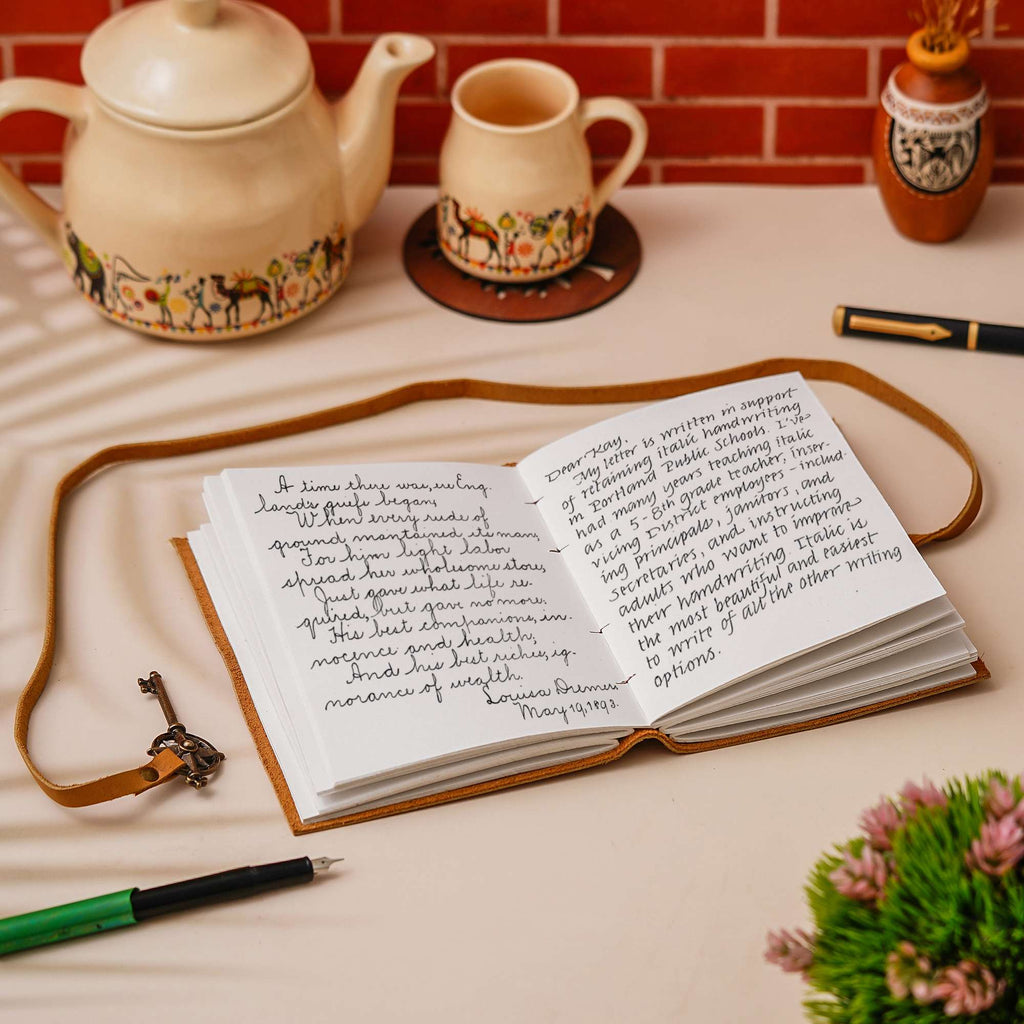 A time there was, ere Eng
land's griefs began,
When every rude of
ground maintained its man,
For him light labor
spread her wholesome store,
Just gave what life re-
quired, but gave no more:
His best companions, in-
nocence and health,
And his best riches, ig-
norance of wealth.
Louisa
May 19, 1893.
Dear Kay,
My letter is written in support
of retaining italic handwriting
in Portland Public Schools. I've
had many years teaching italic
as a 5-8th grade teacher, inser-
vicing District employees - includ-
ing principals, janitors, and
secretaries, and instructing
adults who want to improve
their handwriting. Italic is
the most beautiful and easiest
to write of all the other writing
options.